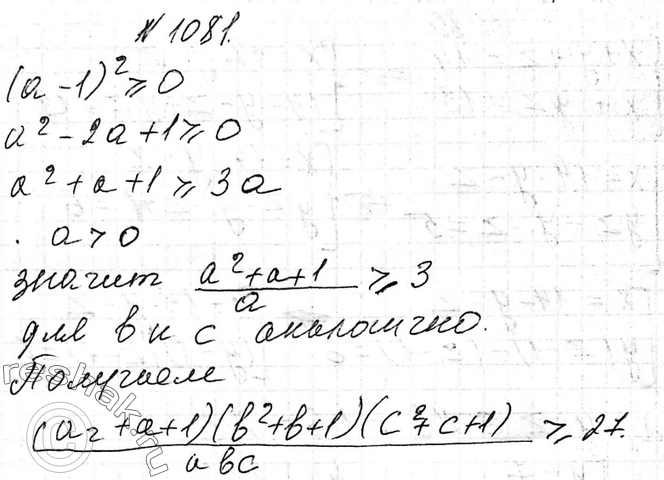 № 1081.
(a - 1)² ⩾ 0
a² - 2a + 1 ⩾ 0
a² + a + 1 ⩾ 3a
. a > 0
значит (a² + a + 1)/a ⩾ 3
для b и c аналогично.
Получаем
((a² + a + 1)(b² + b + 1)(c² + c + 1))/(abc) ⩾ 27.
reshak.ru